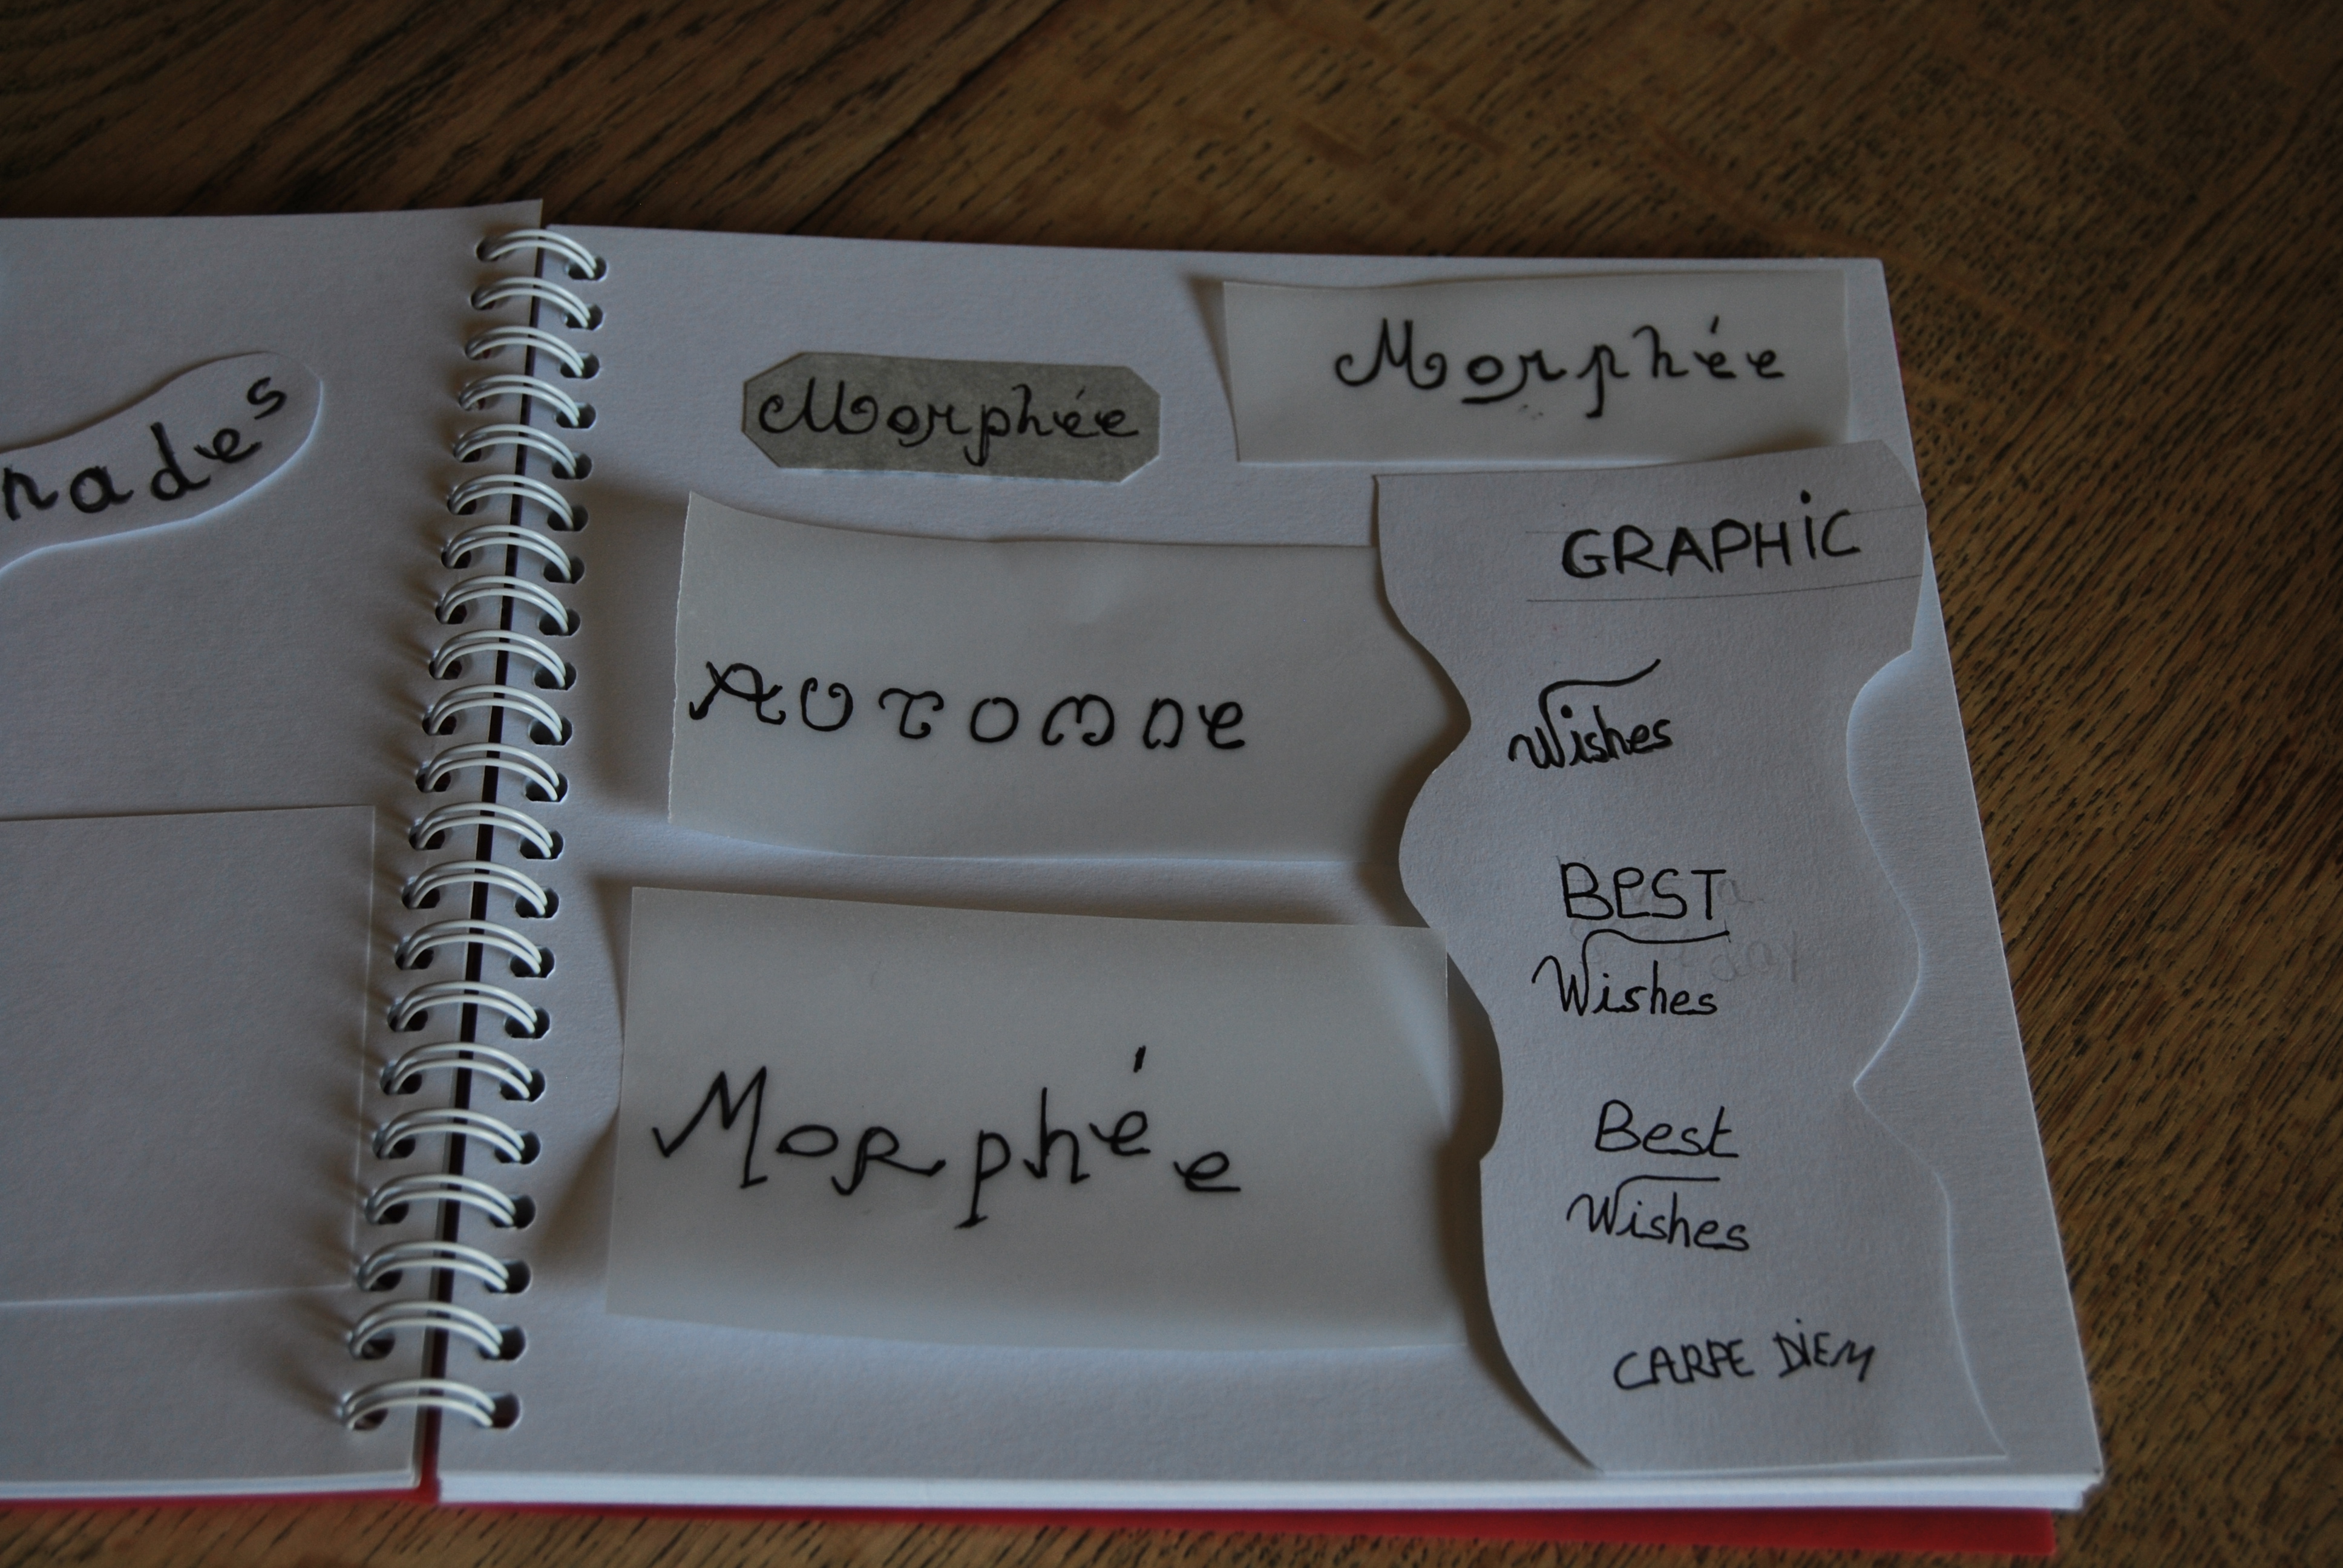 nades
Morphée
Morphée
GRAPHiC
AUTOMNe
Wishes
BeST
Wishes
Morphée
Best
Wishes
CARPE DiEM